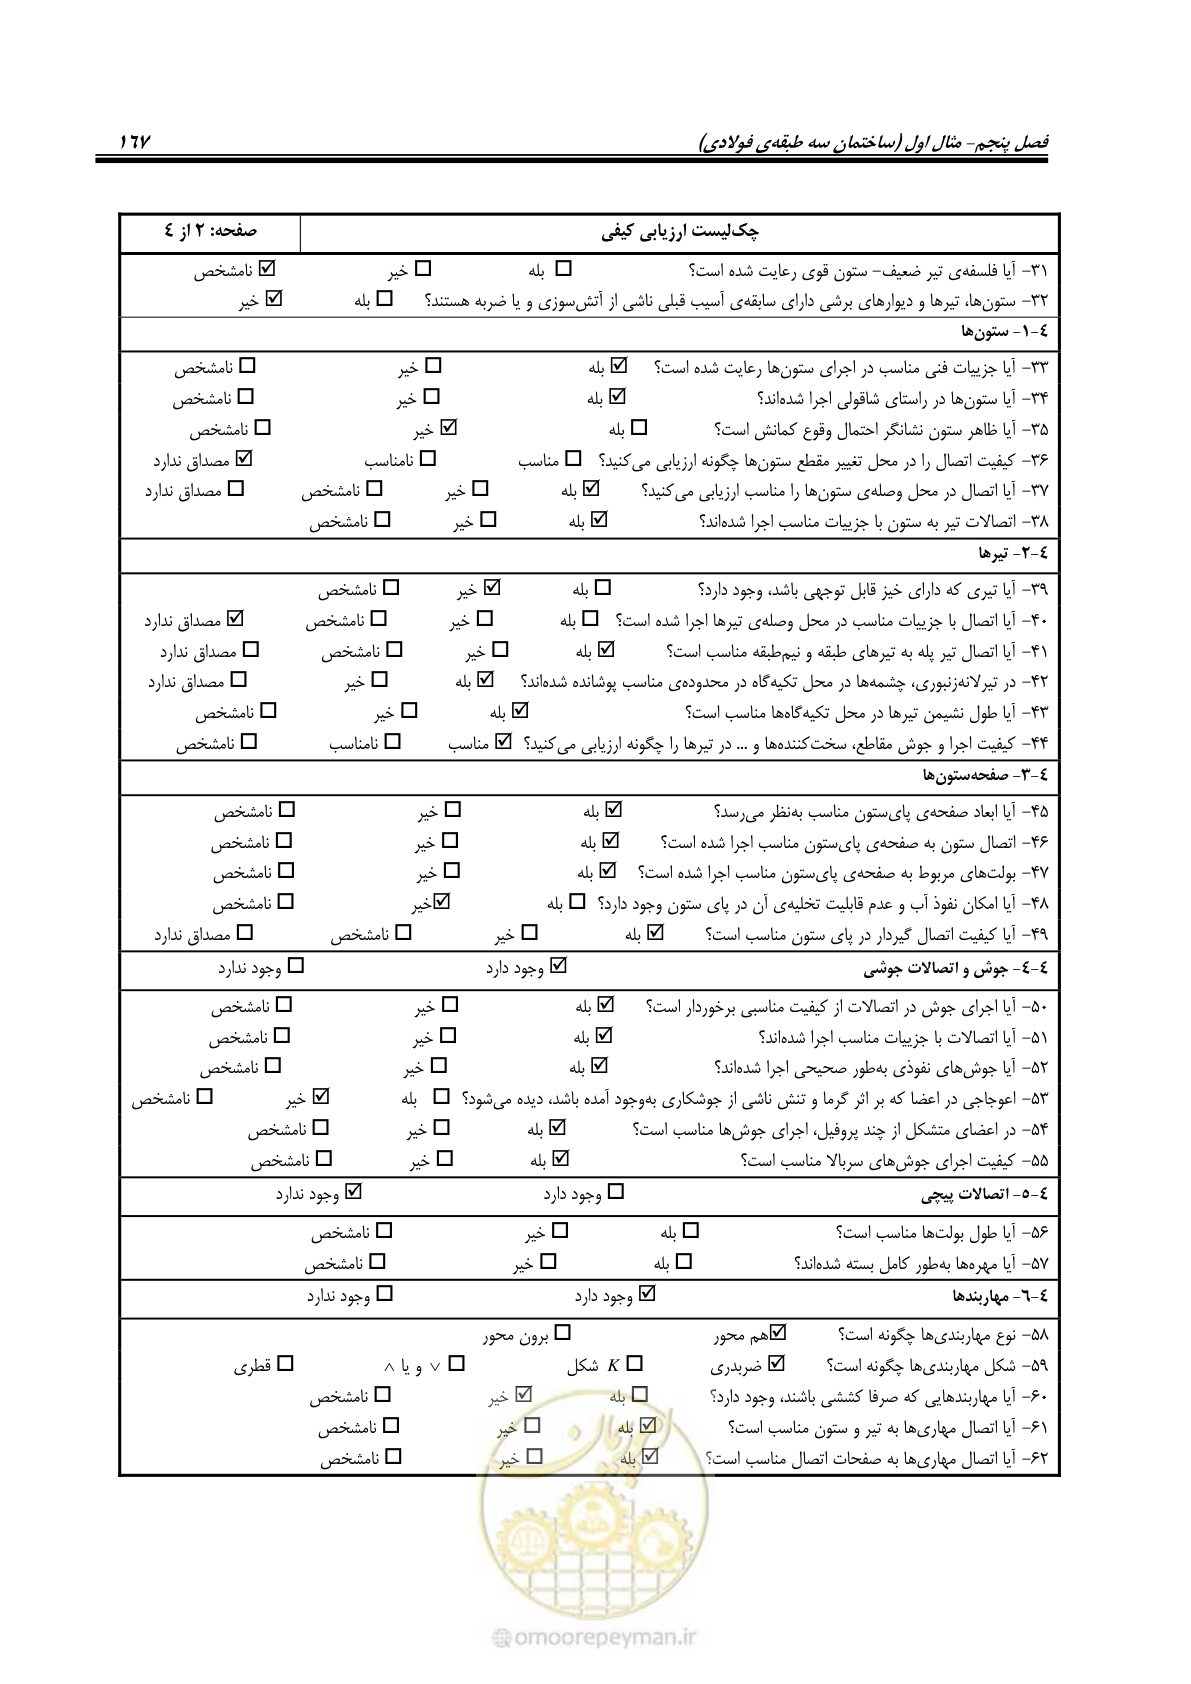 فصل پنجم- مثال اول (ساختمان سه طبقه‌ی فولادی) ۱۶۷
چک‌لیست ارزیابی کیفی صفحه: ۲ از ٤
۳۱- آیا فلسفه‌ی تیر ضعیف- ستون قوی رعایت شده است؟ ☐ بله ☐ خیر ☑ نامشخص
۳۲- ستون‌ها، تیرها و دیوارهای برشی دارای سابقه‌ی آسیب قبلی ناشی از آتش‌سوزی و یا ضربه هستند؟ ☐ بله ☑ خیر
٤-۱- ستون‌ها
۳۳- آیا جزییات فنی مناسب در اجرای ستون‌ها رعایت شده است؟ ☑ بله ☐ خیر ☐ نامشخص
۳۴- آیا ستون‌ها در راستای شاقولی اجرا شده‌اند؟ ☑ بله ☐ خیر ☐ نامشخص
۳۵- آیا ظاهر ستون نشانگر احتمال وقوع کمانش است؟ ☐ بله ☑ خیر ☐ نامشخص
۳۶- کیفیت اتصال را در محل تغییر مقطع ستون‌ها چگونه ارزیابی می‌کنید؟ ☐ مناسب ☐ نامناسب ☑ مصداق ندارد
۳۷- آیا اتصال در محل وصله‌ی ستون‌ها را مناسب ارزیابی می‌کنید؟ ☑ بله ☐ خیر ☐ نامشخص ☐ مصداق ندارد
۳۸- اتصالات تیر به ستون با جزییات مناسب اجرا شده‌اند؟ ☑ بله ☐ خیر ☐ نامشخص
٤-۲- تیرها
۳۹- آیا تیری که دارای خیز قابل توجهی باشد، وجود دارد؟ ☐ بله ☑ خیر ☐ نامشخص
۴۰- آیا اتصال با جزییات مناسب در محل وصله‌ی تیرها اجرا شده است؟ ☐ بله ☐ خیر ☐ نامشخص ☑ مصداق ندارد
۴۱- آیا اتصال تیر پله به تیرهای طبقه و نیم‌طبقه مناسب است؟ ☑ بله ☐ خیر ☐ نامشخص ☐ مصداق ندارد
۴۲- در تیرلانه‌زنبوری، چشمه‌ها در محل تکیه‌گاه در محدوده‌ی مناسب پوشانده شده‌اند؟ ☑ بله ☐ خیر ☐ مصداق ندارد
۴۳- آیا طول نشیمن تیرها در محل تکیه‌گاه‌ها مناسب است؟ ☑ بله ☐ خیر ☐ نامشخص
۴۴- کیفیت اجرا و جوش مقاطع، سخت‌کننده‌ها و ... در تیرها را چگونه ارزیابی می‌کنید؟ ☑ مناسب ☐ نامناسب ☐ نامشخص
٤-۳- صفحه‌ستون‌ها
۴۵- آیا ابعاد صفحه‌ی پای‌ستون مناسب به‌نظر می‌رسد؟ ☑ بله ☐ خیر ☐ نامشخص
۴۶- اتصال ستون به صفحه‌ی پای‌ستون مناسب اجرا شده است؟ ☑ بله ☐ خیر ☐ نامشخص
۴۷- بولت‌های مربوط به صفحه‌ی پای‌ستون مناسب اجرا شده است؟ ☑ بله ☐ خیر ☐ نامشخص
۴۸- آیا امکان نفوذ آب و عدم قابلیت تخلیه‌ی آن در پای ستون وجود دارد؟ ☐ بله ☑خیر ☐ نامشخص
۴۹- آیا کیفیت اتصال گیردار در پای ستون مناسب است؟ ☑ بله ☐ خیر ☐ نامشخص ☐ مصداق ندارد
٤-٤- جوش و اتصالات جوشی ☑ وجود دارد ☐ وجود ندارد
۵۰- آیا اجرای جوش در اتصالات از کیفیت مناسبی برخوردار است؟ ☑ بله ☐ خیر ☐ نامشخص
۵۱- آیا اتصالات با جزییات مناسب اجرا شده‌اند؟ ☑ بله ☐ خیر ☐ نامشخص
۵۲- آیا جوش‌های نفوذی به‌طور صحیحی اجرا شده‌اند؟ ☑ بله ☐ خیر ☐ نامشخص
۵۳- اعوجاجی در اعضا که بر اثر گرما و تنش ناشی از جوشکاری به‌وجود آمده باشد، دیده می‌شود؟ ☐ بله ☑ خیر ☐ نامشخص
۵۴- در اعضای متشکل از چند پروفیل، اجرای جوش‌ها مناسب است؟ ☑ بله ☐ خیر ☐ نامشخص
۵۵- کیفیت اجرای جوش‌های سربالا مناسب است؟ ☑ بله ☐ خیر ☐ نامشخص
٤-٥- اتصالات پیچی ☐ وجود دارد ☑ وجود ندارد
۵۶- آیا طول بولت‌ها مناسب است؟ ☐ بله ☐ خیر ☐ نامشخص
۵۷- آیا مهره‌ها به‌طور کامل بسته شده‌اند؟ ☐ بله ☐ خیر ☐ نامشخص
٤-٦- مهاربندها ☑ وجود دارد ☐ وجود ندارد
۵۸- نوع مهاربندی‌ها چگونه است؟ ☑هم محور ☐ برون محور
۵۹- شکل مهاربندی‌ها چگونه است؟ ☑ ضربدری ☐ K شکل ☐ ∨ و یا ∧ ☐ قطری
۶۰- آیا مهاربندهایی که صرفا کششی باشند، وجود دارد؟ ☐ بله ☑ خیر ☐ نامشخص
۶۱- آیا اتصال مهاری‌ها به تیر و ستون مناسب است؟ ☑ بله ☐ خیر ☐ نامشخص
۶۲- آیا اتصال مهاری‌ها به صفحات اتصال مناسب است؟ ☑ بله ☐ خیر ☐ نامشخص
omoorepeyman.ir